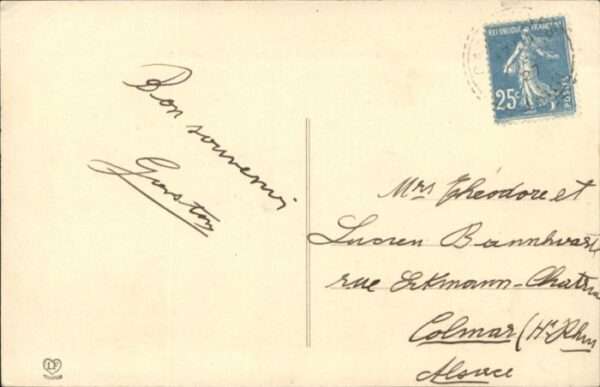 Bon souvenir
Gaston
REPUBLIQUE FRANÇAISE
25c
POSTES
Mrs Théodore et
Lucien Bannwart
rue Erkmann-Chatri
Colmar (Ht Rhin
Alsace